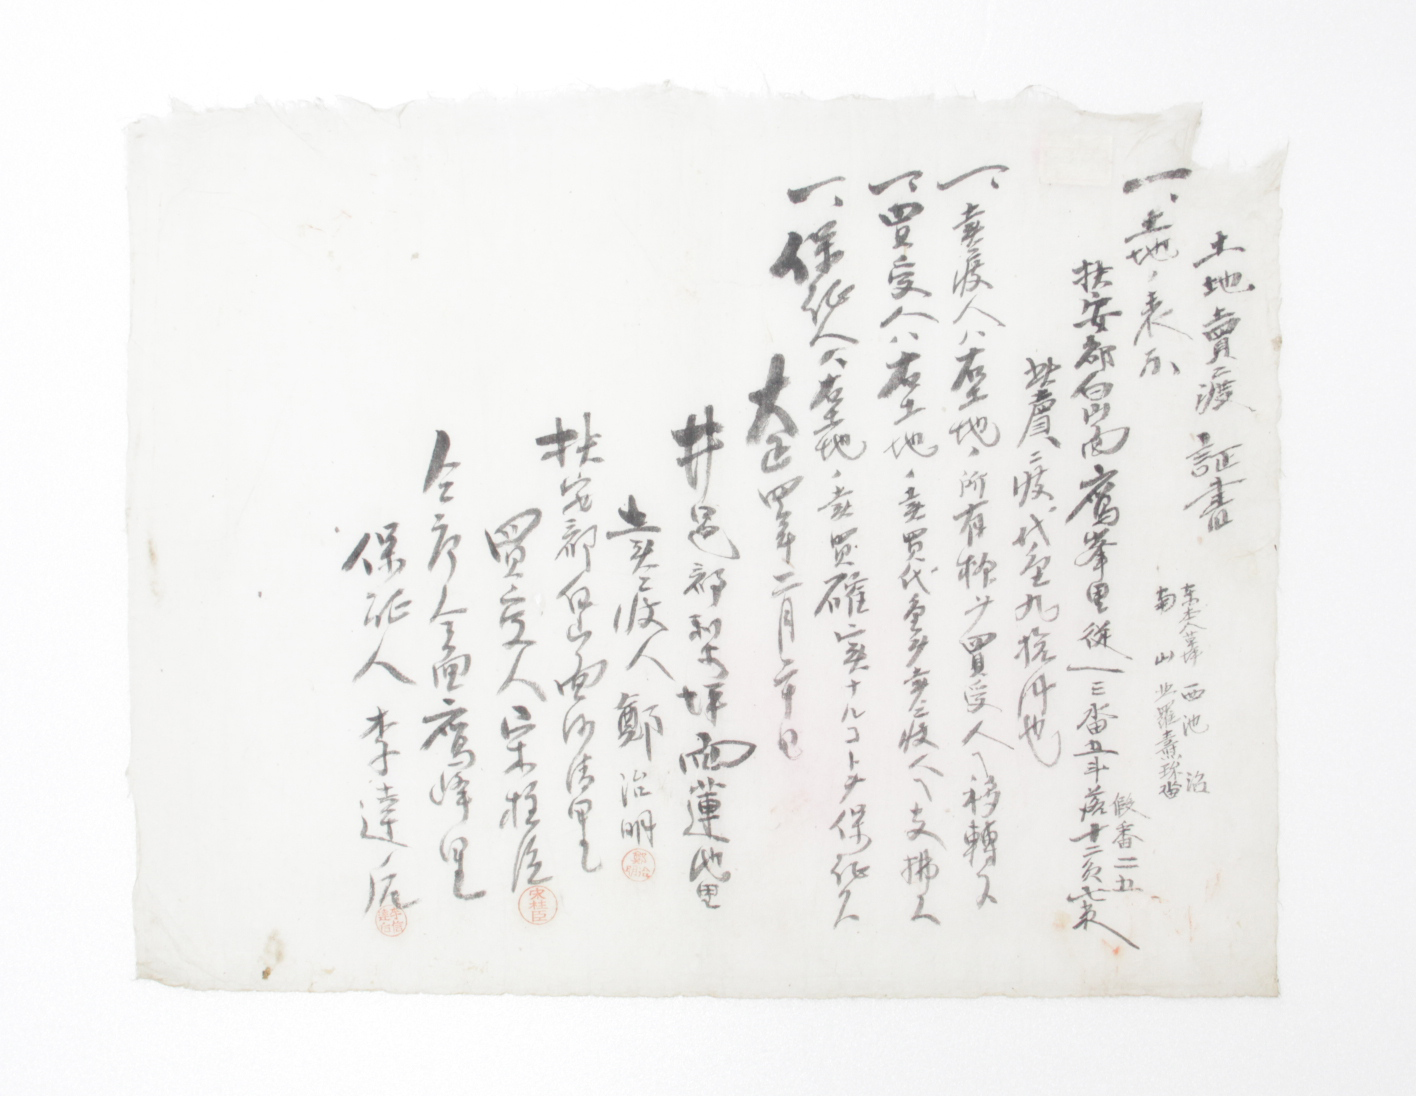 土地賣渡証書
一、土地ノ表示
東 西池 沼
南山 北羅壽
扶安郡白山面鳶峯里 三畓五斗落十二負七束
假番二五
此賣渡代金九拾円也
一、賣渡人ハ右土地ノ所有権ヲ買受人ヘ移轉ス
一、買受人ハ右土地ノ賣買代金ヲ賣渡人ヘ支拂ス
一、保証人ハ右土地ノ賣買確实ナルコトヲ保証ス
大正四年二月二十日
井邑郡梨坪面蓮池里
賣渡人 鄭治明
扶安郡白山面
買受人 宋桂臣
仝郡仝面鳶峰里
保証人 李達
宋桂臣